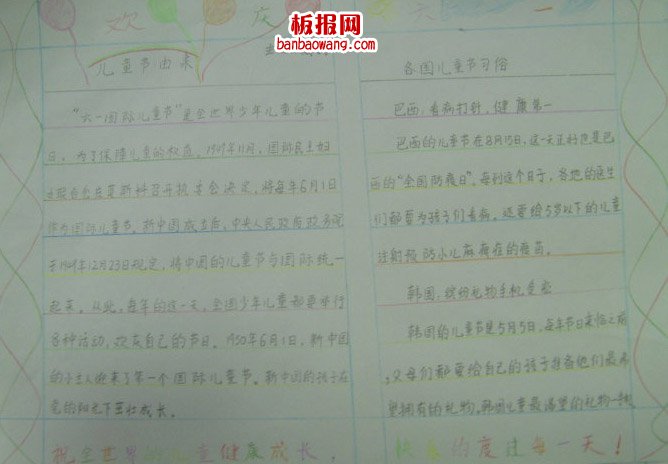 欢 庆 六 一
板报网
banbaowang.com
儿童节由来
"六一国际儿童节"是全世界少年儿童的节
日。为了保障儿童的权益，1949年11月，国际民主妇
女联合会在莫斯科召开执委会决定，将每年6月1日
作为国际儿童节。新中国成立后，中央人民政府政务院
于1949年12月23日规定，将中国的儿童节与国际统一
起来。从此，每年的这一天，全国少年儿童都要举行
各种活动，欢庆自己的节日。1950年6月1日，新中国
的小主人迎来了第一个国际儿童节。新中国的孩子在
党的阳光下茁壮成长。
各国儿童节习俗
巴西，看病打针，健康第一
巴西的儿童节在8月15日，这一天正好也是巴
西的"全国防疫日"，每到这个日子，各地的医生
们都要为孩子们看病，还要给5岁以下的儿童
注射预防小儿麻痹症的疫苗。
韩国，缤纷礼物手机受宠
韩国的儿童节是5月5日，每年节日来临之前
，父母们都要给自己的孩子准备他们最希
望拥有的礼物，韩国儿童最渴望的礼物一规
祝全世界的儿童健康成长，
快乐的度过每一天！